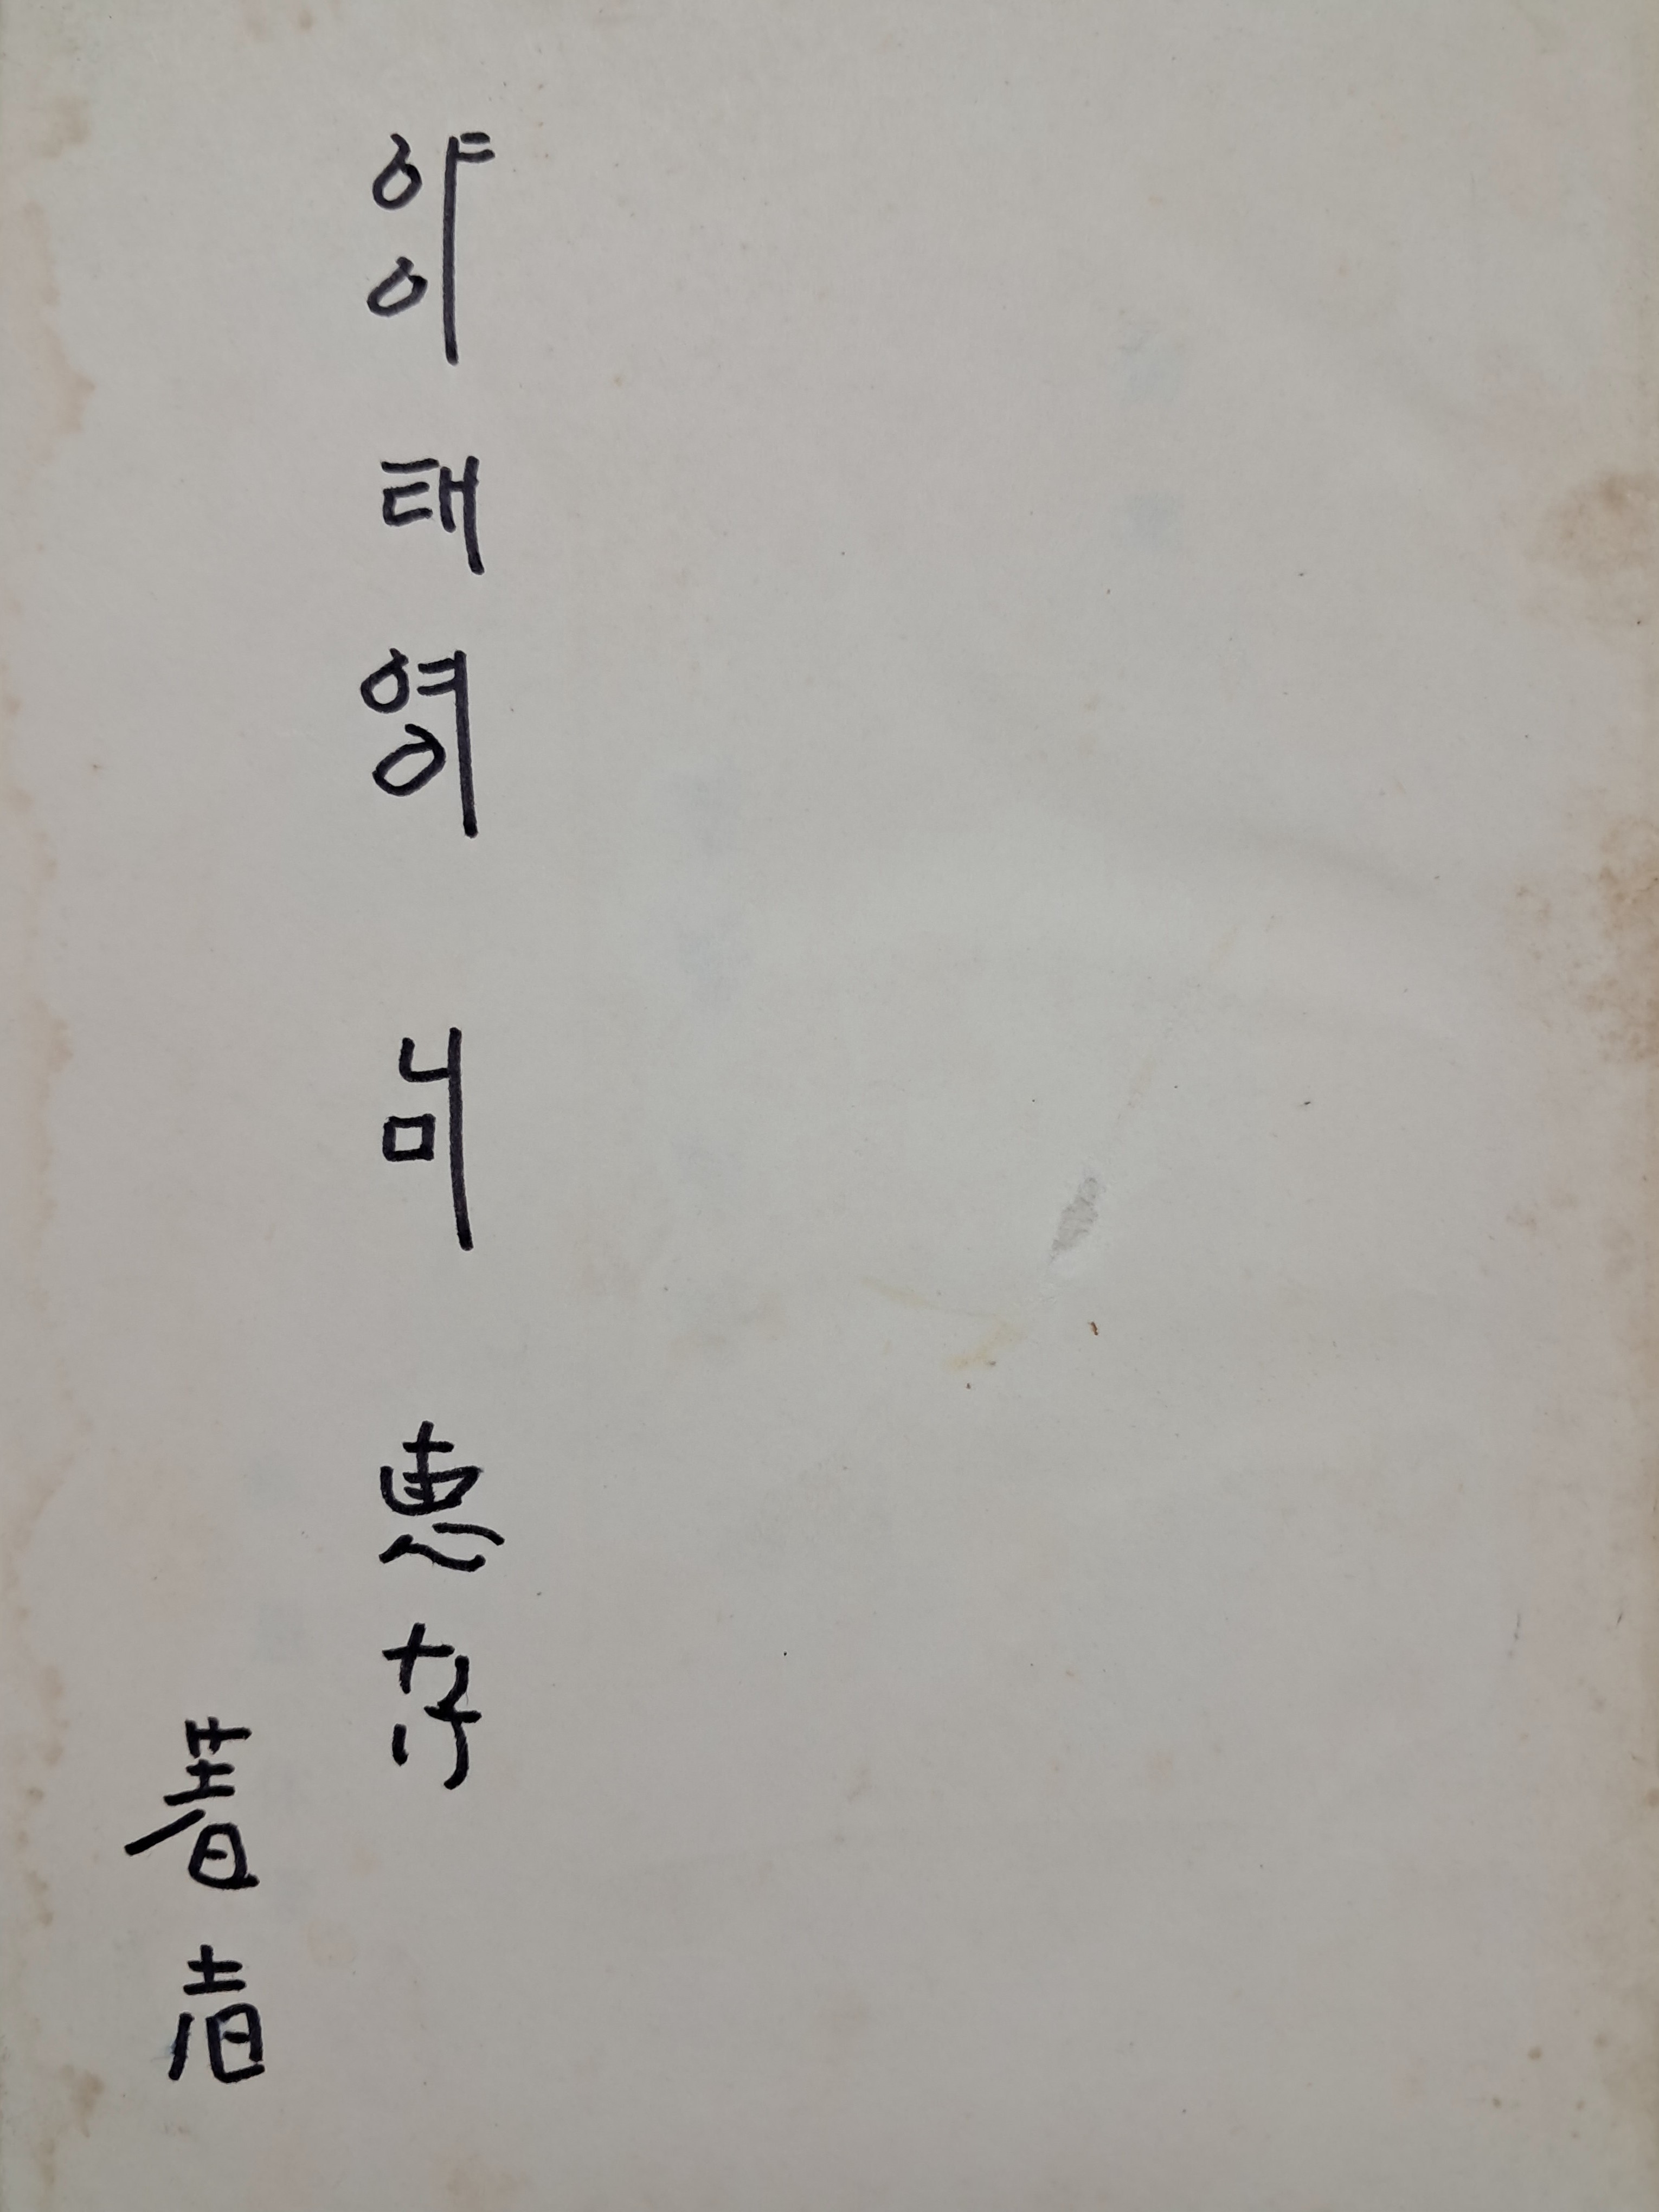 양태영 님 惠存
著者